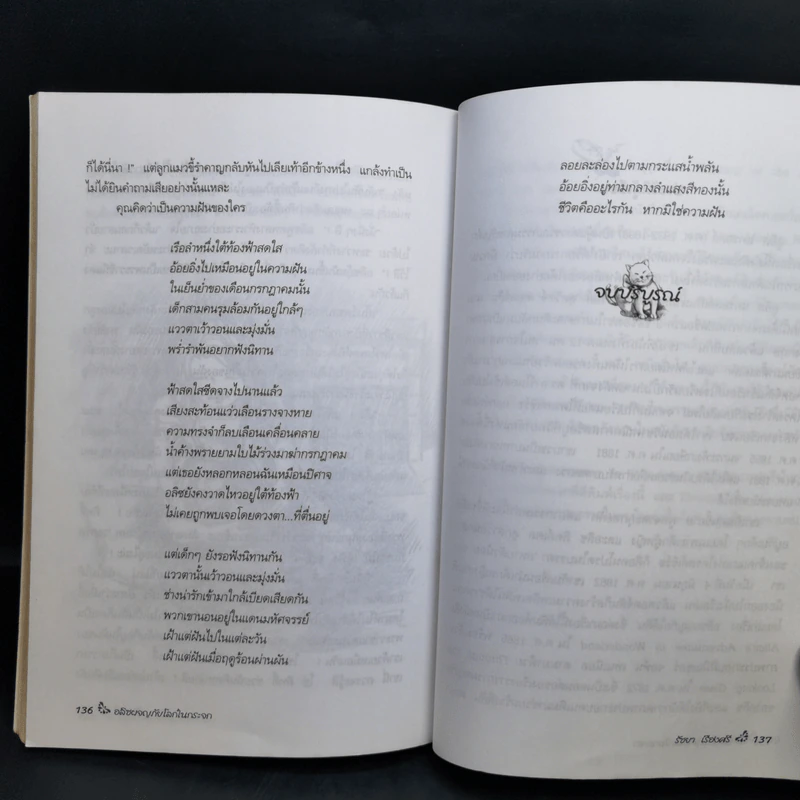 ก็ได้นี่นา !" แต่ลูกแมวขี้รำคาญกลับหันไปเลียเท้าอีกข้างหนึ่ง แกล้งทำเป็น
ไม่ได้ยินคำถามเสียอย่างนั้นแหละ
คุณคิดว่าเป็นความฝันของใคร
เรือลำหนึ่งใต้ท้องฟ้าสดใส
อ้อยอิ่งไปเหมือนอยู่ในความฝัน
ในเย็นย่ำของเดือนกรกฎาคมนั้น
เด็กสามคนรุมล้อมกันอยู่ใกล้ๆ
แววตาเว้าวอนและมุ่งมั่น
พร่ำรำพันอยากฟังนิทาน
ฟ้าสดใสซีดจางไปนานแล้ว
เสียงสะท้อนแว่วเลือนรางจางหาย
ความทรงจำก็ลบเลือนเคลื่อนคลาย
น้ำค้างพรายยามใบไม้ร่วงมาฆ่ากรกฎาคม
แต่เธอยังหลอกหลอนฉันเหมือนปีศาจ
อลิซยังคงวาดไหวอยู่ใต้ท้องฟ้า
ไม่เคยถูกพบเจอโดยดวงตา...ที่ตื่นอยู่
แต่เด็กๆ ยังรอฟังนิทานกัน
แววตานั้นเว้าวอนและมุ่งมั่น
ช่างน่ารักเข้ามาใกล้เบียดเสียดกัน
พวกเขานอนอยู่ในแดนมหัศจรรย์
เฝ้าแต่ฝันไปในแต่ละวัน
เฝ้าแต่ฝันเมื่อฤดูร้อนผ่านผัน
136 อลิซผจญภัยโลกในกระจก
ลอยละล่องไปตามกระแสน้ำพลัน
อ้อยอิ่งอยู่ท่ามกลางลำแสงสีทองนั้น
ชีวิตคืออะไรกัน หากมิใช่ความฝัน
จบบริบูรณ์
รัชยา เรืองศรี 137